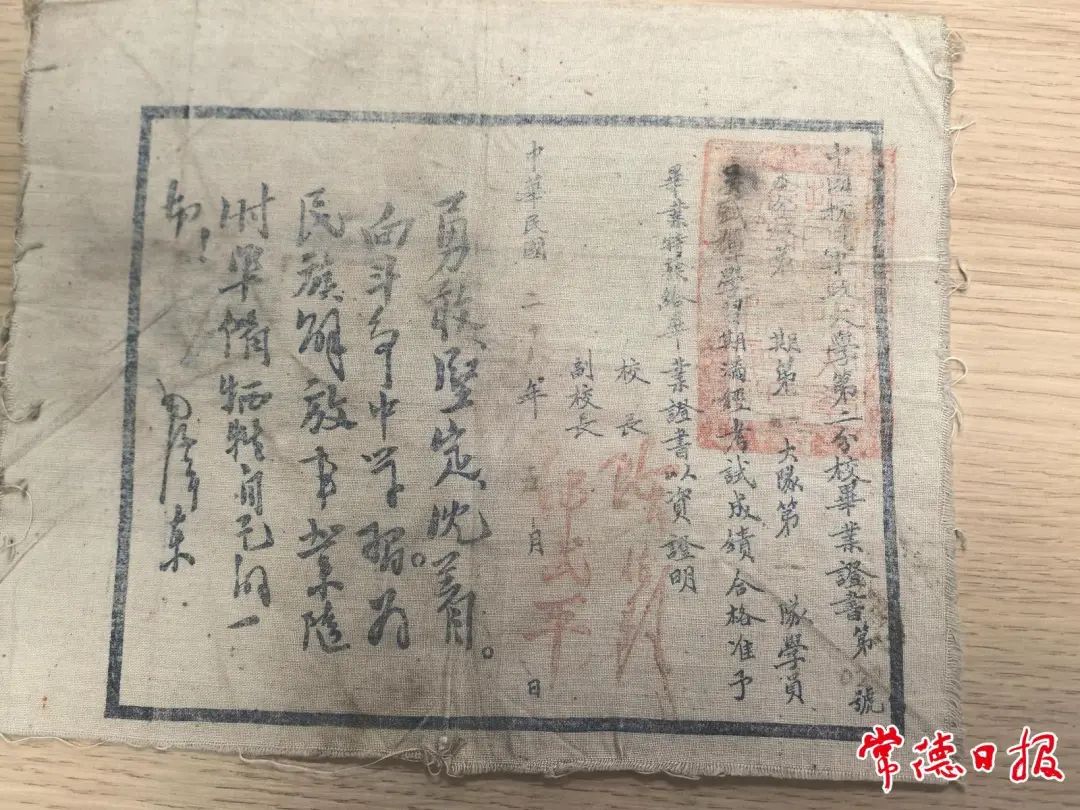 中國抗日軍政大學第二分校畢業證書第 號
期第一大隊第一隊學員
學習期滿經考試成績合格准予
畢業特發給畢業證書以資證明
校長 陳伯鈞
副校長 邵式平
中華民國二十八年五月 日
勇敢堅定沈着。
向斗争中学習。为
民族解放事業隨
时準備牺牲自己的一
切！
毛澤東
常德日报